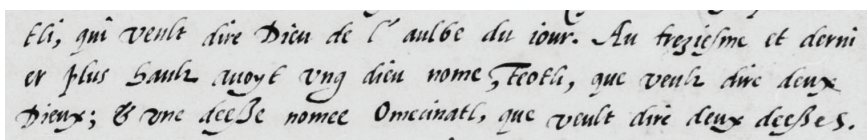 tli, qui veult dire Dieu de l'aulbe du iour. Au treziesme et derni
er plus hault auoyt vng dieu nome, Teotli, que veult dire deux
Dieux; & vne deesse nomee Omecinatl, que veult dire deux deesses.